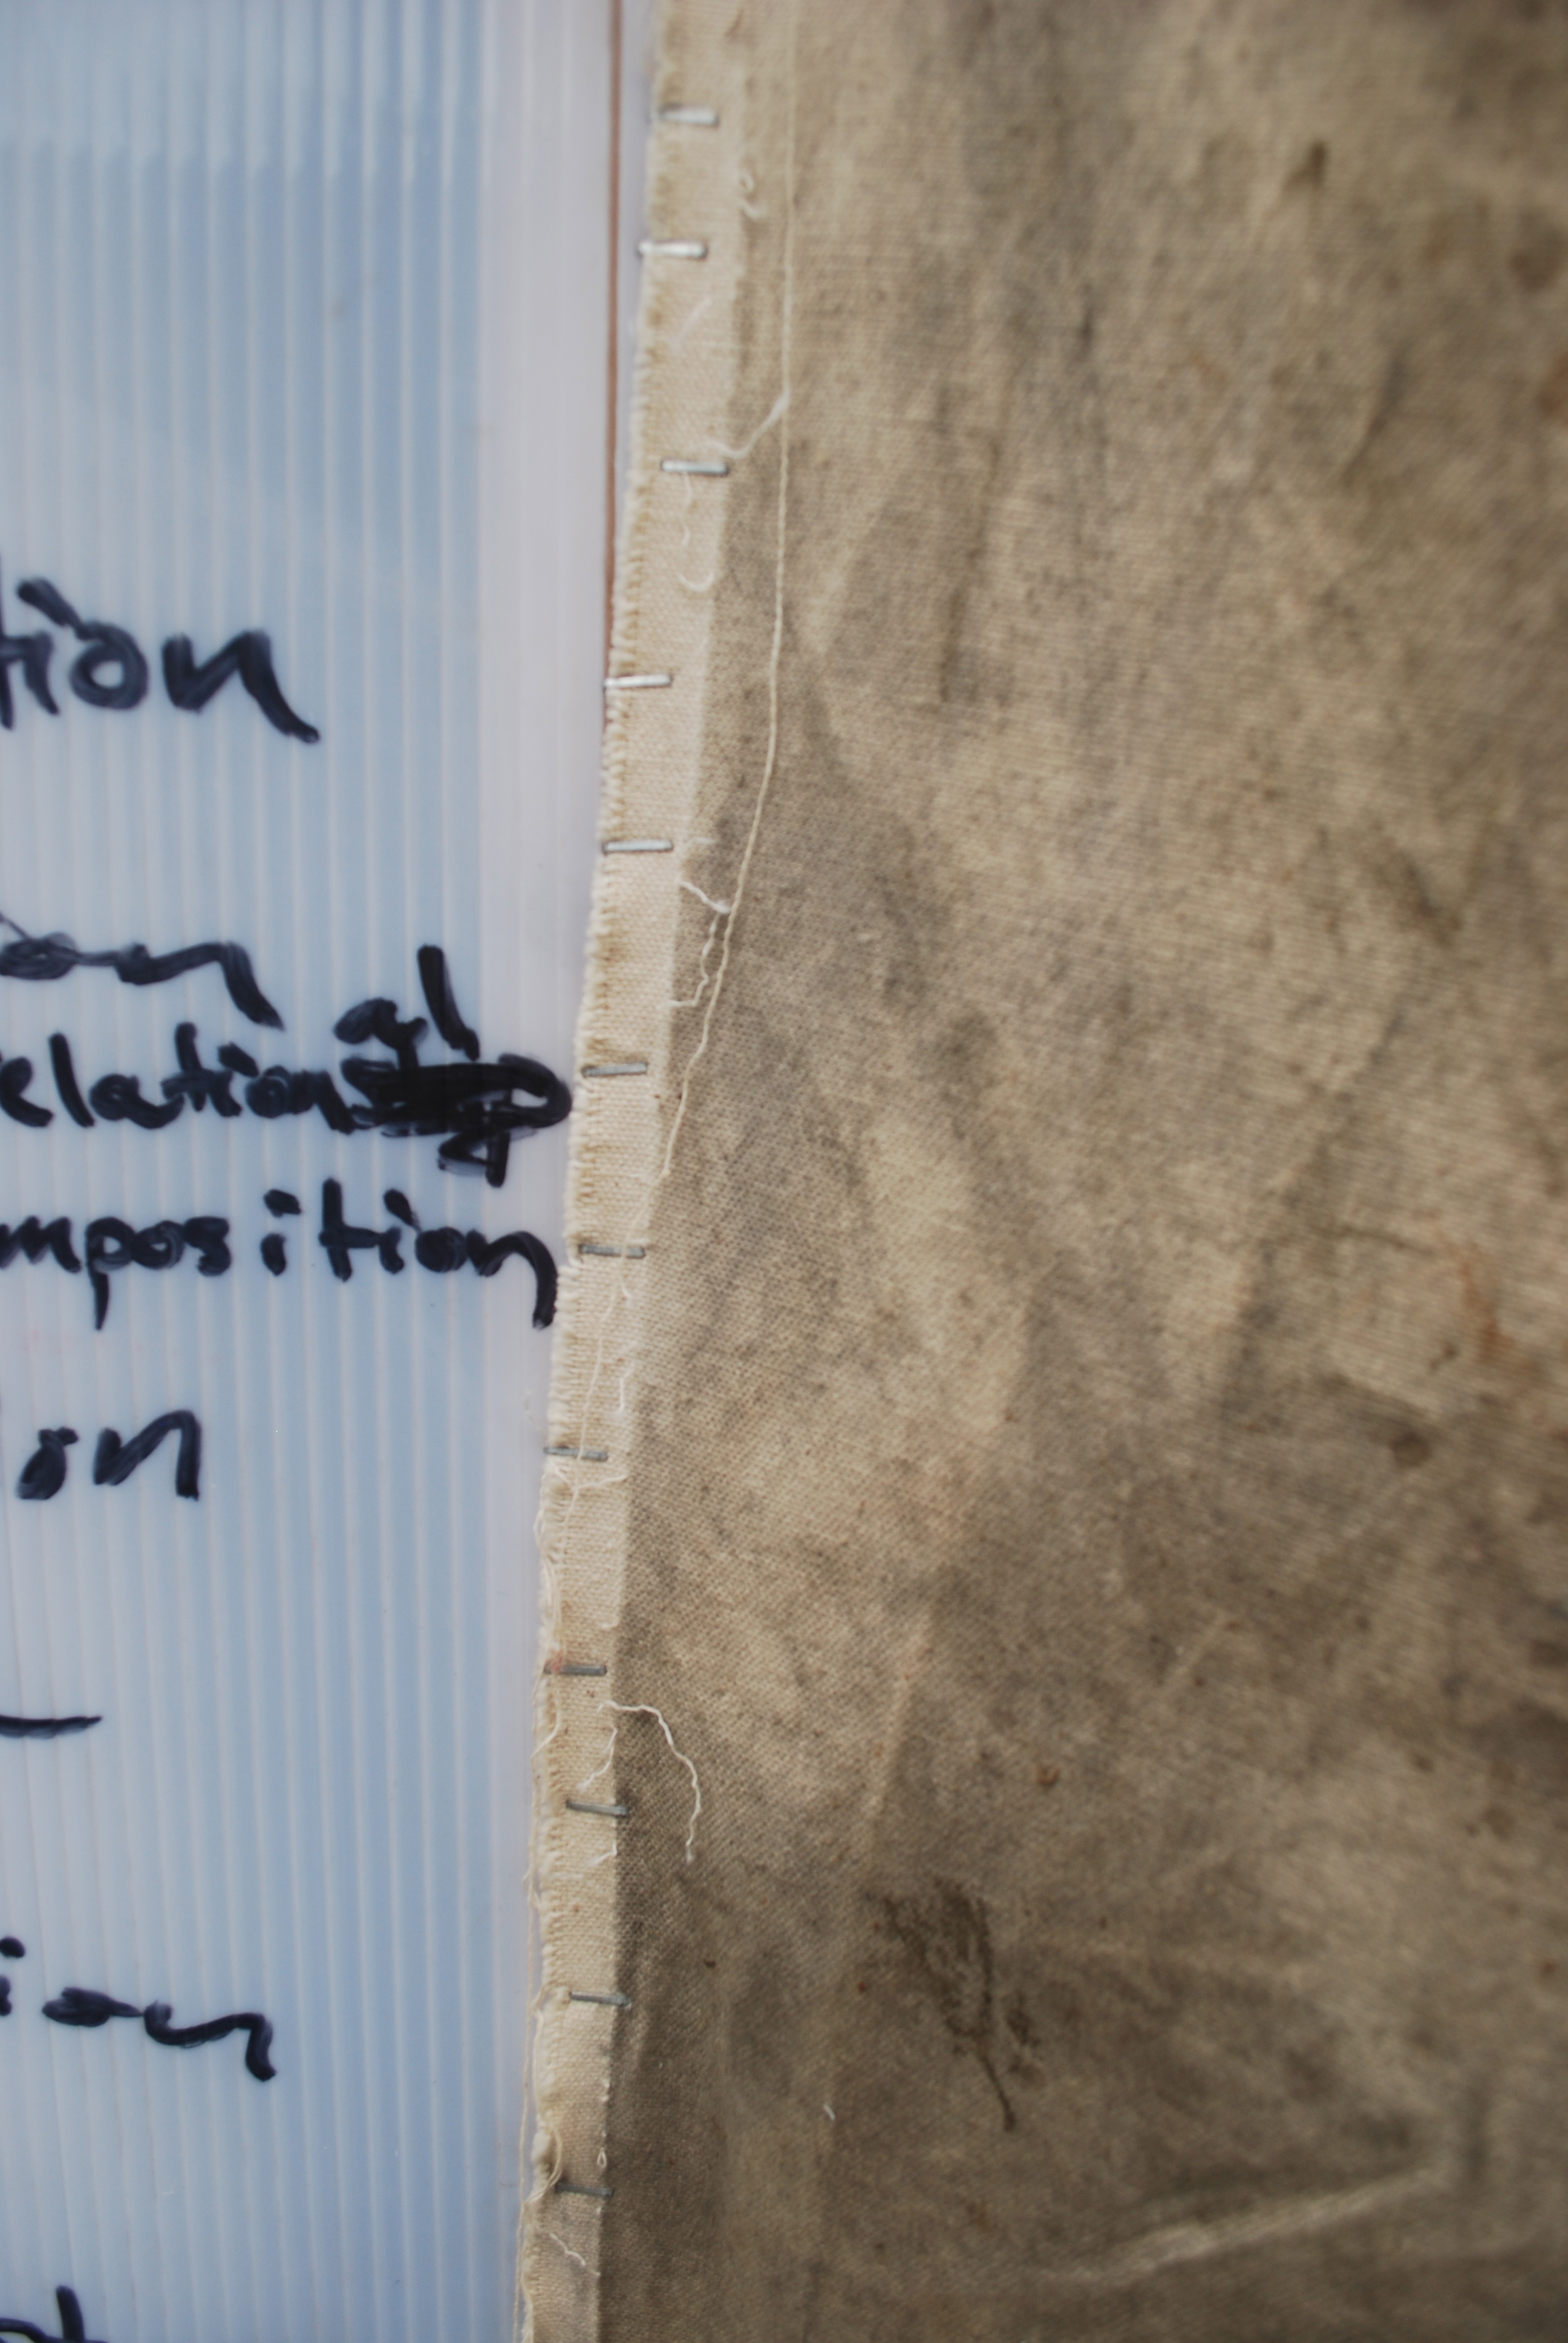 tion
on
al
elation
mposition
on
ion